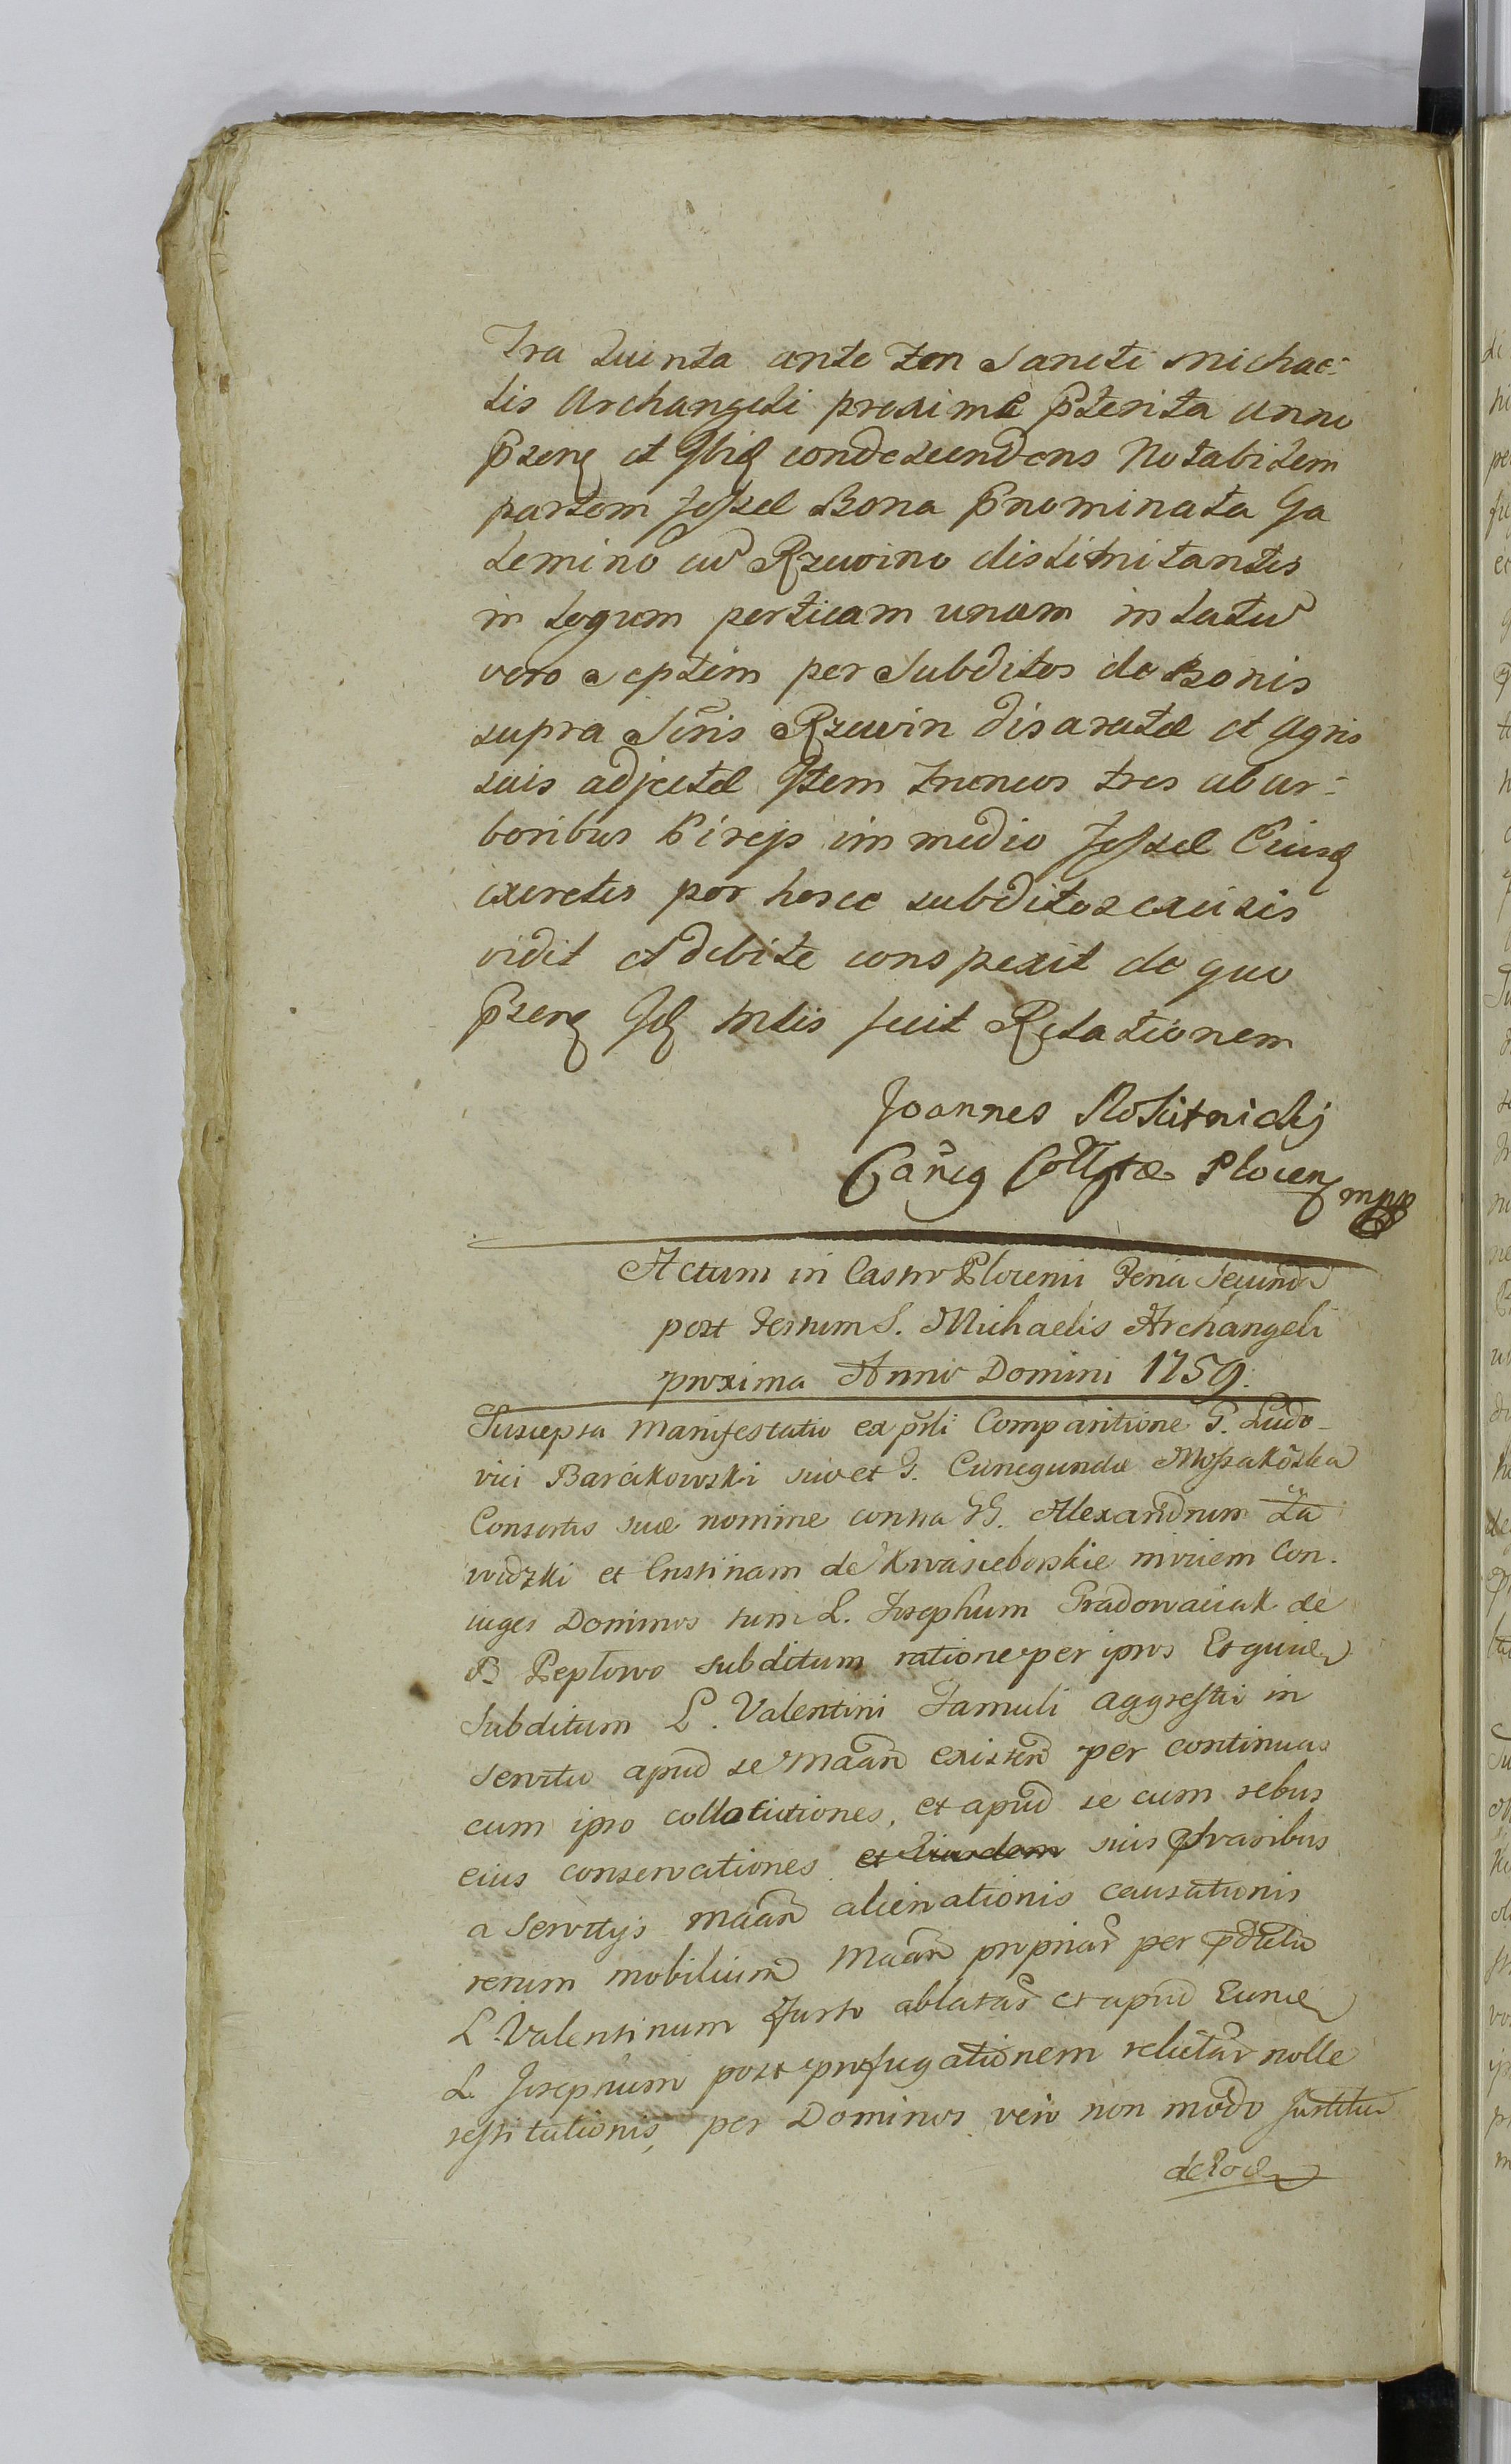 Fra Quinta ante Fen Sancti Michae-
lis Archangeli proxime pterita anno
pzens et Ibiq condescendens Notabilem
partem fossae Bona pnominata Ga
lemino cu Rzewino dislimitantis
in logum perticam unam in latu
vero septem per Subditos de Bonis
supra Scris Rzewin disaratae et Agris
suis adjectae Item Truncos tres ab ar-
boribus Pireis im medio fossae Eiusq
excretis per hosce subditos excisis
vidit et debite conspexit de quo
pzens Idq Mlis fecit Relationem
Joannes Rokitnicki
Cancg Collgtae Plocen mpp
Actum in Castro Plocensi Feria Secunda
post Festum S. Michaelis Archangeli
proxima Anno Domini 1759.
Suscepta Manifestatio ex psli Comparitione G. Ludo-
vici Barcikowski suo et G. Cunegundae Mossakoska
Consortis suae nomine contra GG. Alexandrum Za
widzki et Cristinam de Kwasieborskie invicem Con-
iuges Dominos tum L. Josephum Gradowaciak de
B Peplowo subditum ratione per ipsos Eiq
Subditum L. Valentini Famuli aggressti in
servitio apud se Maan existen per continuas
cum ipso collocutiones, et apud se cum rebus
eius conservationes et Eiusdem suis
a Servitijs Maan alienationis causationis
rerum mobilium Maan propriar per pdictu
L. Valentinum furto ablatar et apud Eunde
L. Josephum post profugationem relictar nolle
restitutionis, per Dominos vero non modo Justitiae